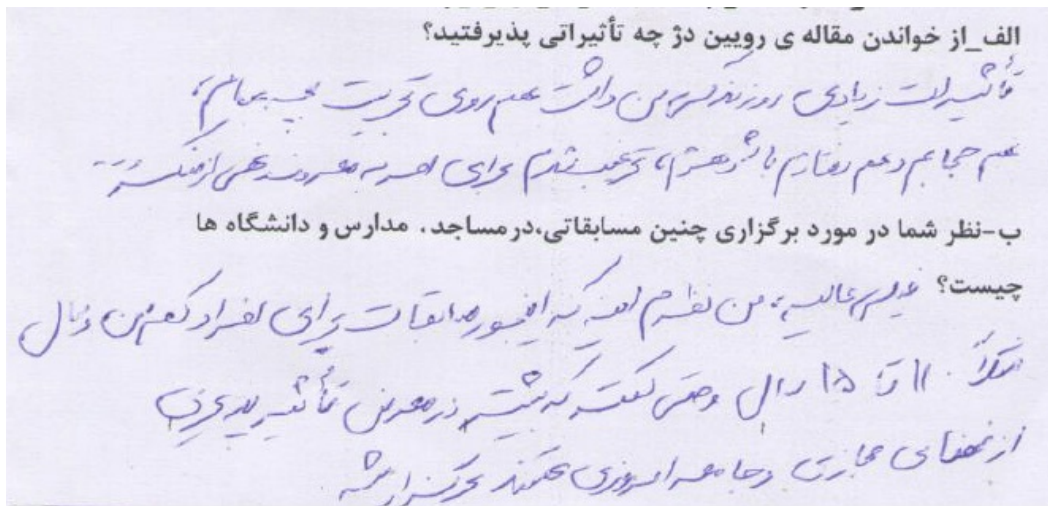 الف_از خواندن مقاله ی رویین دژ چه تأثیراتی پذیرفتید؟
تأثیرات زیادی رو زندگی من داشت هم روی تربیت بچه‌هام،
هم حجابم و هم رفتارم با شوهرم، ترغیب شدم برای امر به معروف و نهی از منکر...
ب-نظر شما در مورد برگزاری چنین مسابقاتی،در مساجد. مدارس و دانشگاه ها
چیست؟ خیلی عالیه، من نظرم اینه که اینجور مسابقات برای افراد کم سن و سال
مثلاً ۱۱ تا ۱۵ سال و حتی کمتر که بیشتر در معرض تأثیرپذیری
از فضای مجازی و جامعه امروزی هستند برگزار بشه